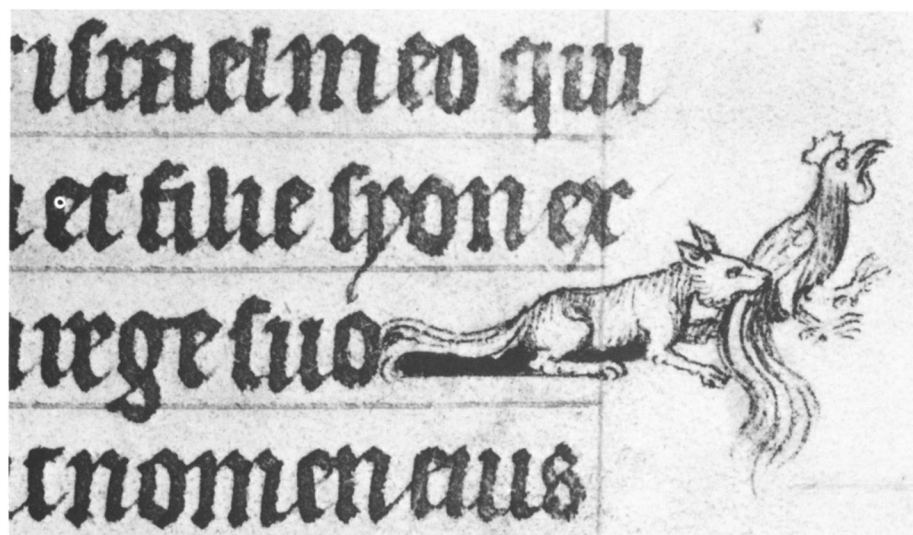 israel in eo qui
et filie syon ex
rege suo
nomen eius